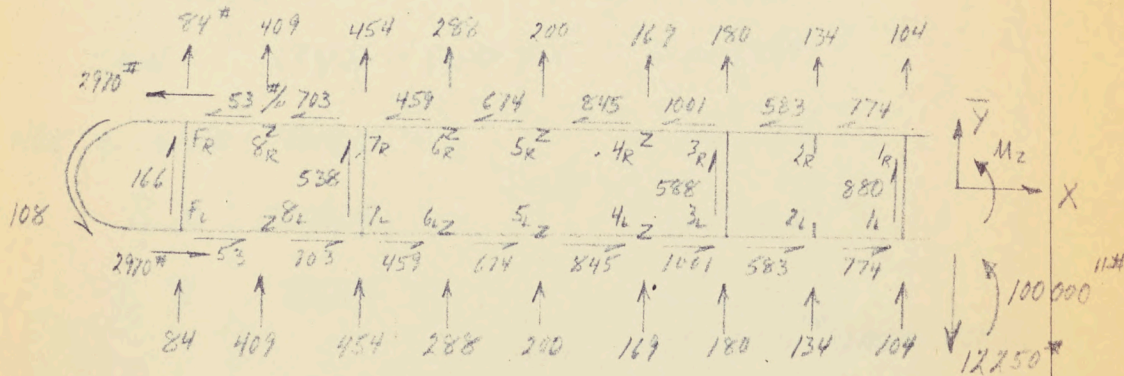 84# 409 454 288 200 169 180 134 104
2970#
53 #/" 703 459 674 845 1001 583 774
FR 8R 7R 6R 5R 4R 3R 2R 1R
Y
Mz
166 538 588 880
X
108
FL 8L 7L 6L 5L 4L 3L 2L 1L
2970# 53 703 459 674 845 1001 583 774
100000"#
84 409 454 288 200 169 180 134 104
12250#